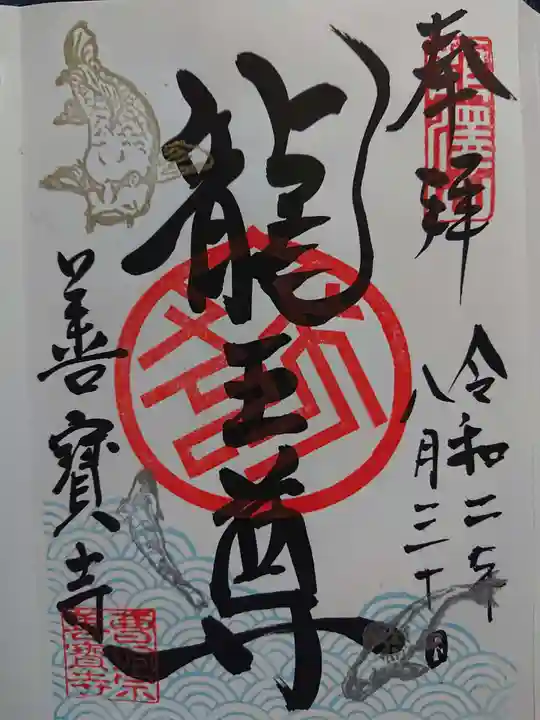 奉拝
令和二年
八月三十日
龍王尊
善寳寺
曹洞宗
善寳寺